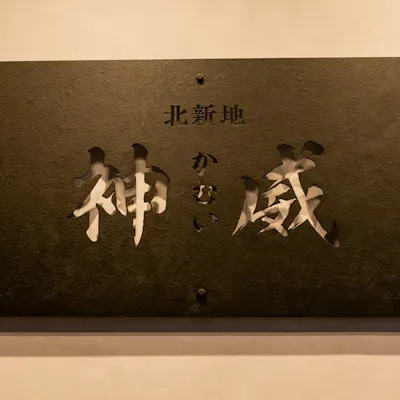 北新地
神威
かむい